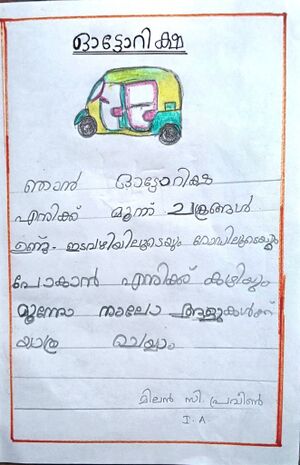 ഓട്ടോറിക്ഷ
ഞാൻ ഓട്ടോറിക്ഷ
എനിക്ക് മൂന്ന് ചക്രങ്ങൾ
ഉണ്ട്. ഇടവഴിയിലൂടെയും റോഡിലൂടെയും
പോകാൻ എനിക്ക് കഴിയും
മൂന്നോ നാലോ ആളുകൾക്ക്
യാത്ര ചെയ്യാം
മിലൻ സി. പ്രവീൺ
I. A